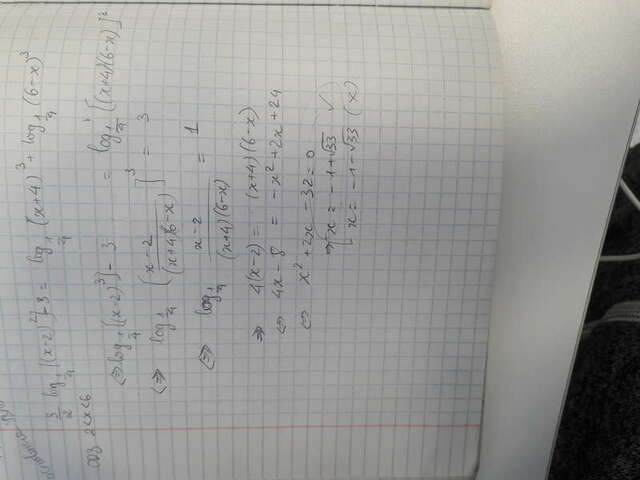 основание
3/2 log_{1/4} [(x-2)^2] - 3 = log_{1/4} (x+4)^3 + log_{1/4} (6-x)^3
ОДЗ 2<x<6
⇔ log_{1/4} [(x-2)^3] - 3 = log_{1/4} [(x+4)(6-x)]^3
⇔ log_{1/4} [(x-2)/((x+4)(6-x))]^3 = 3
⇔ log_{1/4} (x-2)/((x+4)(6-x)) = 1
⇒ 4(x-2) = (x+4)(6-x)
⇔ 4x - 8 = -x^2 + 2x + 24
⇔ x^2 + 2x - 32 = 0
⇒ [x = -1+√33 ✓
x = -1-√33 (x)